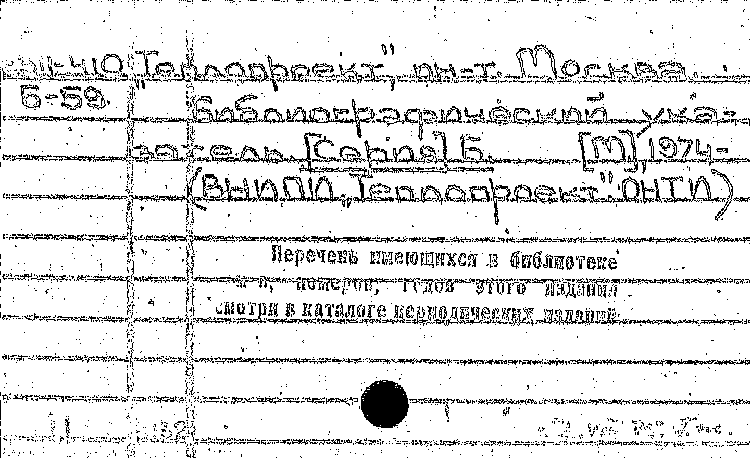 „Теплопроект", ин-т. Москва.
Б-59 Библиографический ука-
затель. [Серия] Б. [М], 1974-
(ВНИПИ „Теплопроект". ОНТИ)
Перечень имеющихся в библиотеке
номеров, годов этого издания
смотри в каталоге периодических изданий.